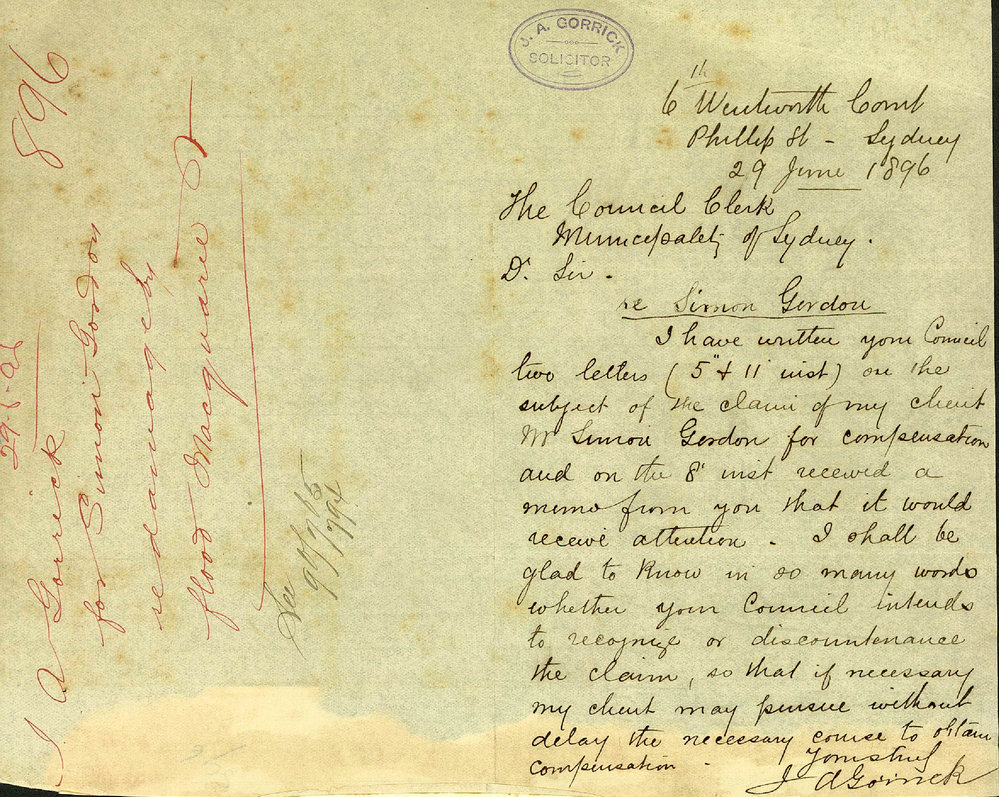 J. A. GORRICK
SOLICITOR
6th Wentworth Court
Phillip St - Sydney
29 June 1896
The Council Clerk
Municipality of Sydney.
Dr. Sir -
re Simon Gordon
I have written your Council
two letters (5" & 11 inst) on the
subject of the claim of my client
Mr Simon Gordon for compensation
and on the 8' inst received a
memo from you that it would
receive attention - I shall be
glad to know in so many words
whether your Council intends
to recognize or discountenance
the claim, so that if necessary
my client may pursue without
delay the necessary course to obtain
compensation -
Yours truly
J A Gorrick
896
29.6.96
J A Gorrick
for Simon Gordon
re damage by
flood Macquarie St
See 95/